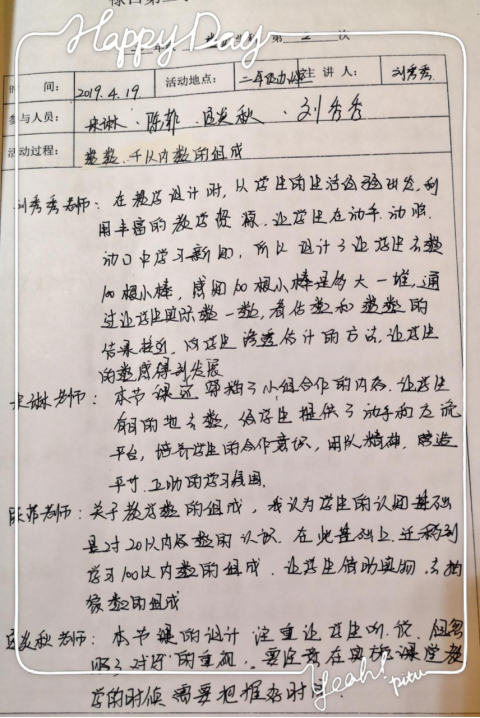 Happy Day
第 2 次
时 间： 2019.4.19 活动地点： 二年级办公室 主讲人： 刘秀秀
参与人员： 宋琳、陈菲、炎秋、刘秀秀
活动过程： 数数、千以内数的组成
刘秀秀老师：在教学设计时，从学生的生活经验出发，利
用丰富的教学资源，让学生在动手、动脑、
动口中学习新知，所以设计了让学生去数
100根小棒，感知100根小棒是多大一堆，通
过让学生实际数一数，看估数和数数的
结果接近，向学生渗透估计的方法，让学生
的数感得到发展
宋琳老师：本节课还穿插了小组合作的内容，让学生
有目的地去数，给学生提供了动手和交流
平台，培养学生的合作意识，团队精神，营造
平等、互助的学习氛围
陈菲老师：关于教学数的组成，我认为学生的认知基础
是对20以内各数的认识，在此基础上，迁移到
学习100以内数的组成，让学生借助实物，去抽
象数的组成
炎秋老师：本节课的设计注重让学生听、说，但忽
略了对"写"的重视，要注意在实施课堂教
学的时候需要把握好时间。
Yeah!